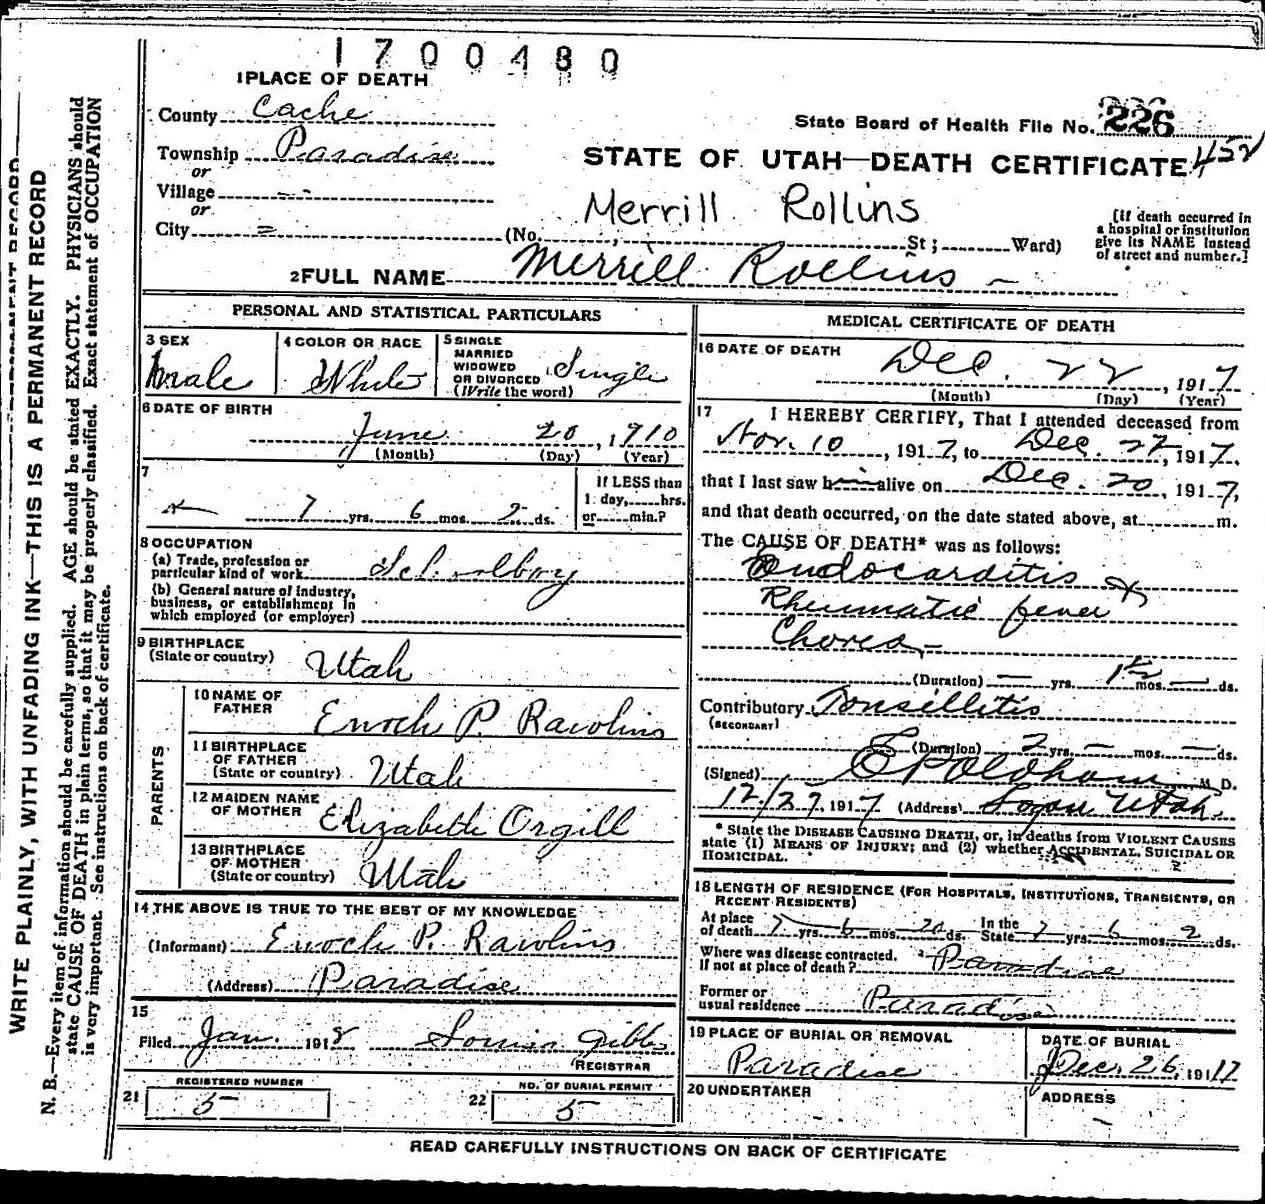 1700480
1 PLACE OF DEATH
County Cache
Township Paradise
or
Village - -
or
City =
State Board of Health File No. 226
452
STATE OF UTAH—DEATH CERTIFICATE
Merrill Rollins
(No. , St; Ward)
[If death occurred in
a hospital or institution
give its NAME instead
of street and number.]
2 FULL NAME Merrill Rollins
PERSONAL AND STATISTICAL PARTICULARS
3 SEX
Male
4 COLOR OR RACE
White
5 SINGLE
MARRIED
WIDOWED
OR DIVORCED
(Write the word)
Single
6 DATE OF BIRTH
June 20, 1910
(Month) (Day) (Year)
7
7 yrs. 6 mos. 2 ds.
If LESS than
1 day, hrs.
or min.?
8 OCCUPATION
(a) Trade, profession or
particular kind of work
(b) General nature of industry,
business, or establishment in
which employed (or employer)
9 BIRTHPLACE
(State or country) Utah
PARENTS
10 NAME OF
FATHER Enoch P. Rawlins
11 BIRTHPLACE
OF FATHER
(State or country) Utah
12 MAIDEN NAME
OF MOTHER Elizabeth Orgill
13 BIRTHPLACE
OF MOTHER
(State or country) Utah
14 THE ABOVE IS TRUE TO THE BEST OF MY KNOWLEDGE
(Informant) Enoch P. Rawlins
(Address) Paradise
15
Filed Jan. 1918 Louisa Gibbs
REGISTRAR
REGISTERED NUMBER
21 5
NO. OF BURIAL PERMIT
22 5
MEDICAL CERTIFICATE OF DEATH
16 DATE OF DEATH
Dec. 22, 1917
(Month) (Day) (Year)
17 I HEREBY CERTIFY, That I attended deceased from
Nov. 10, 1917, to Dec. 22, 1917,
that I last saw him alive on Dec. 20, 1917,
and that death occurred, on the date stated above, at m.
The CAUSE OF DEATH* was as follows:
Endocarditis
Rheumatic fever
Chorea
(Duration) — yrs. 1½ mos. — ds.
Contributory Tonsillitis
(SECONDARY)
(Duration) 2 yrs. — mos. — ds.
(Signed) E P Oldham M. D.
12/27, 1917 (Address) Logan Utah.
* State the DISEASE CAUSING DEATH, or, in deaths from VIOLENT CAUSES
state (1) MEANS OF INJURY; and (2) whether ACCIDENTAL, SUICIDAL OR
HOMICIDAL.
18 LENGTH OF RESIDENCE (FOR HOSPITALS, INSTITUTIONS, TRANSIENTS, OR
RECENT RESIDENTS)
At place
of death 7 yrs. 6 mos. 20 ds.
In the
State 7 yrs. 6 mos. 2 ds.
Where was disease contracted,
if not at place of death? Paradise
Former or
usual residence Paradise
19 PLACE OF BURIAL OR REMOVAL
Paradise
DATE OF BURIAL
Dec. 26, 1917
20 UNDERTAKER
ADDRESS
READ CAREFULLY INSTRUCTIONS ON BACK OF CERTIFICATE
WRITE PLAINLY, WITH UNFADING INK—THIS IS A PERMANENT RECORD
N. B.—Every item of information should be carefully supplied. AGE should be stated EXACTLY. PHYSICIANS should
state CAUSE OF DEATH in plain terms, so that it may be properly classified. Exact statement of OCCUPATION
is very important. See instructions on back of certificate.